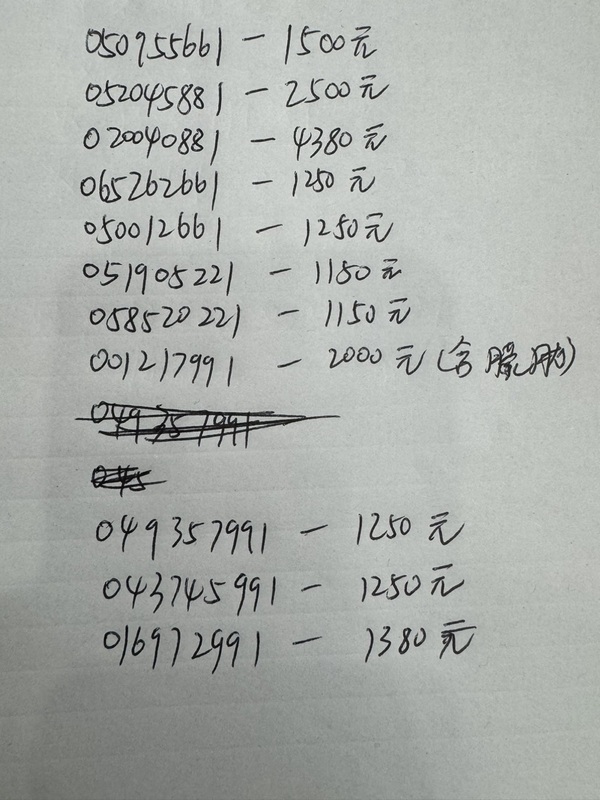 050955661 — 1500元
052045881 — 2500元
020040881 — 4380元
065262661 — 1250元
050012661 — 1250元
051905221 — 1180元
058520221 — 1150元
001217991 — 2000元(含
049357991
045
049357991 — 1250元
043745991 — 1250元
016972991 — 1380元